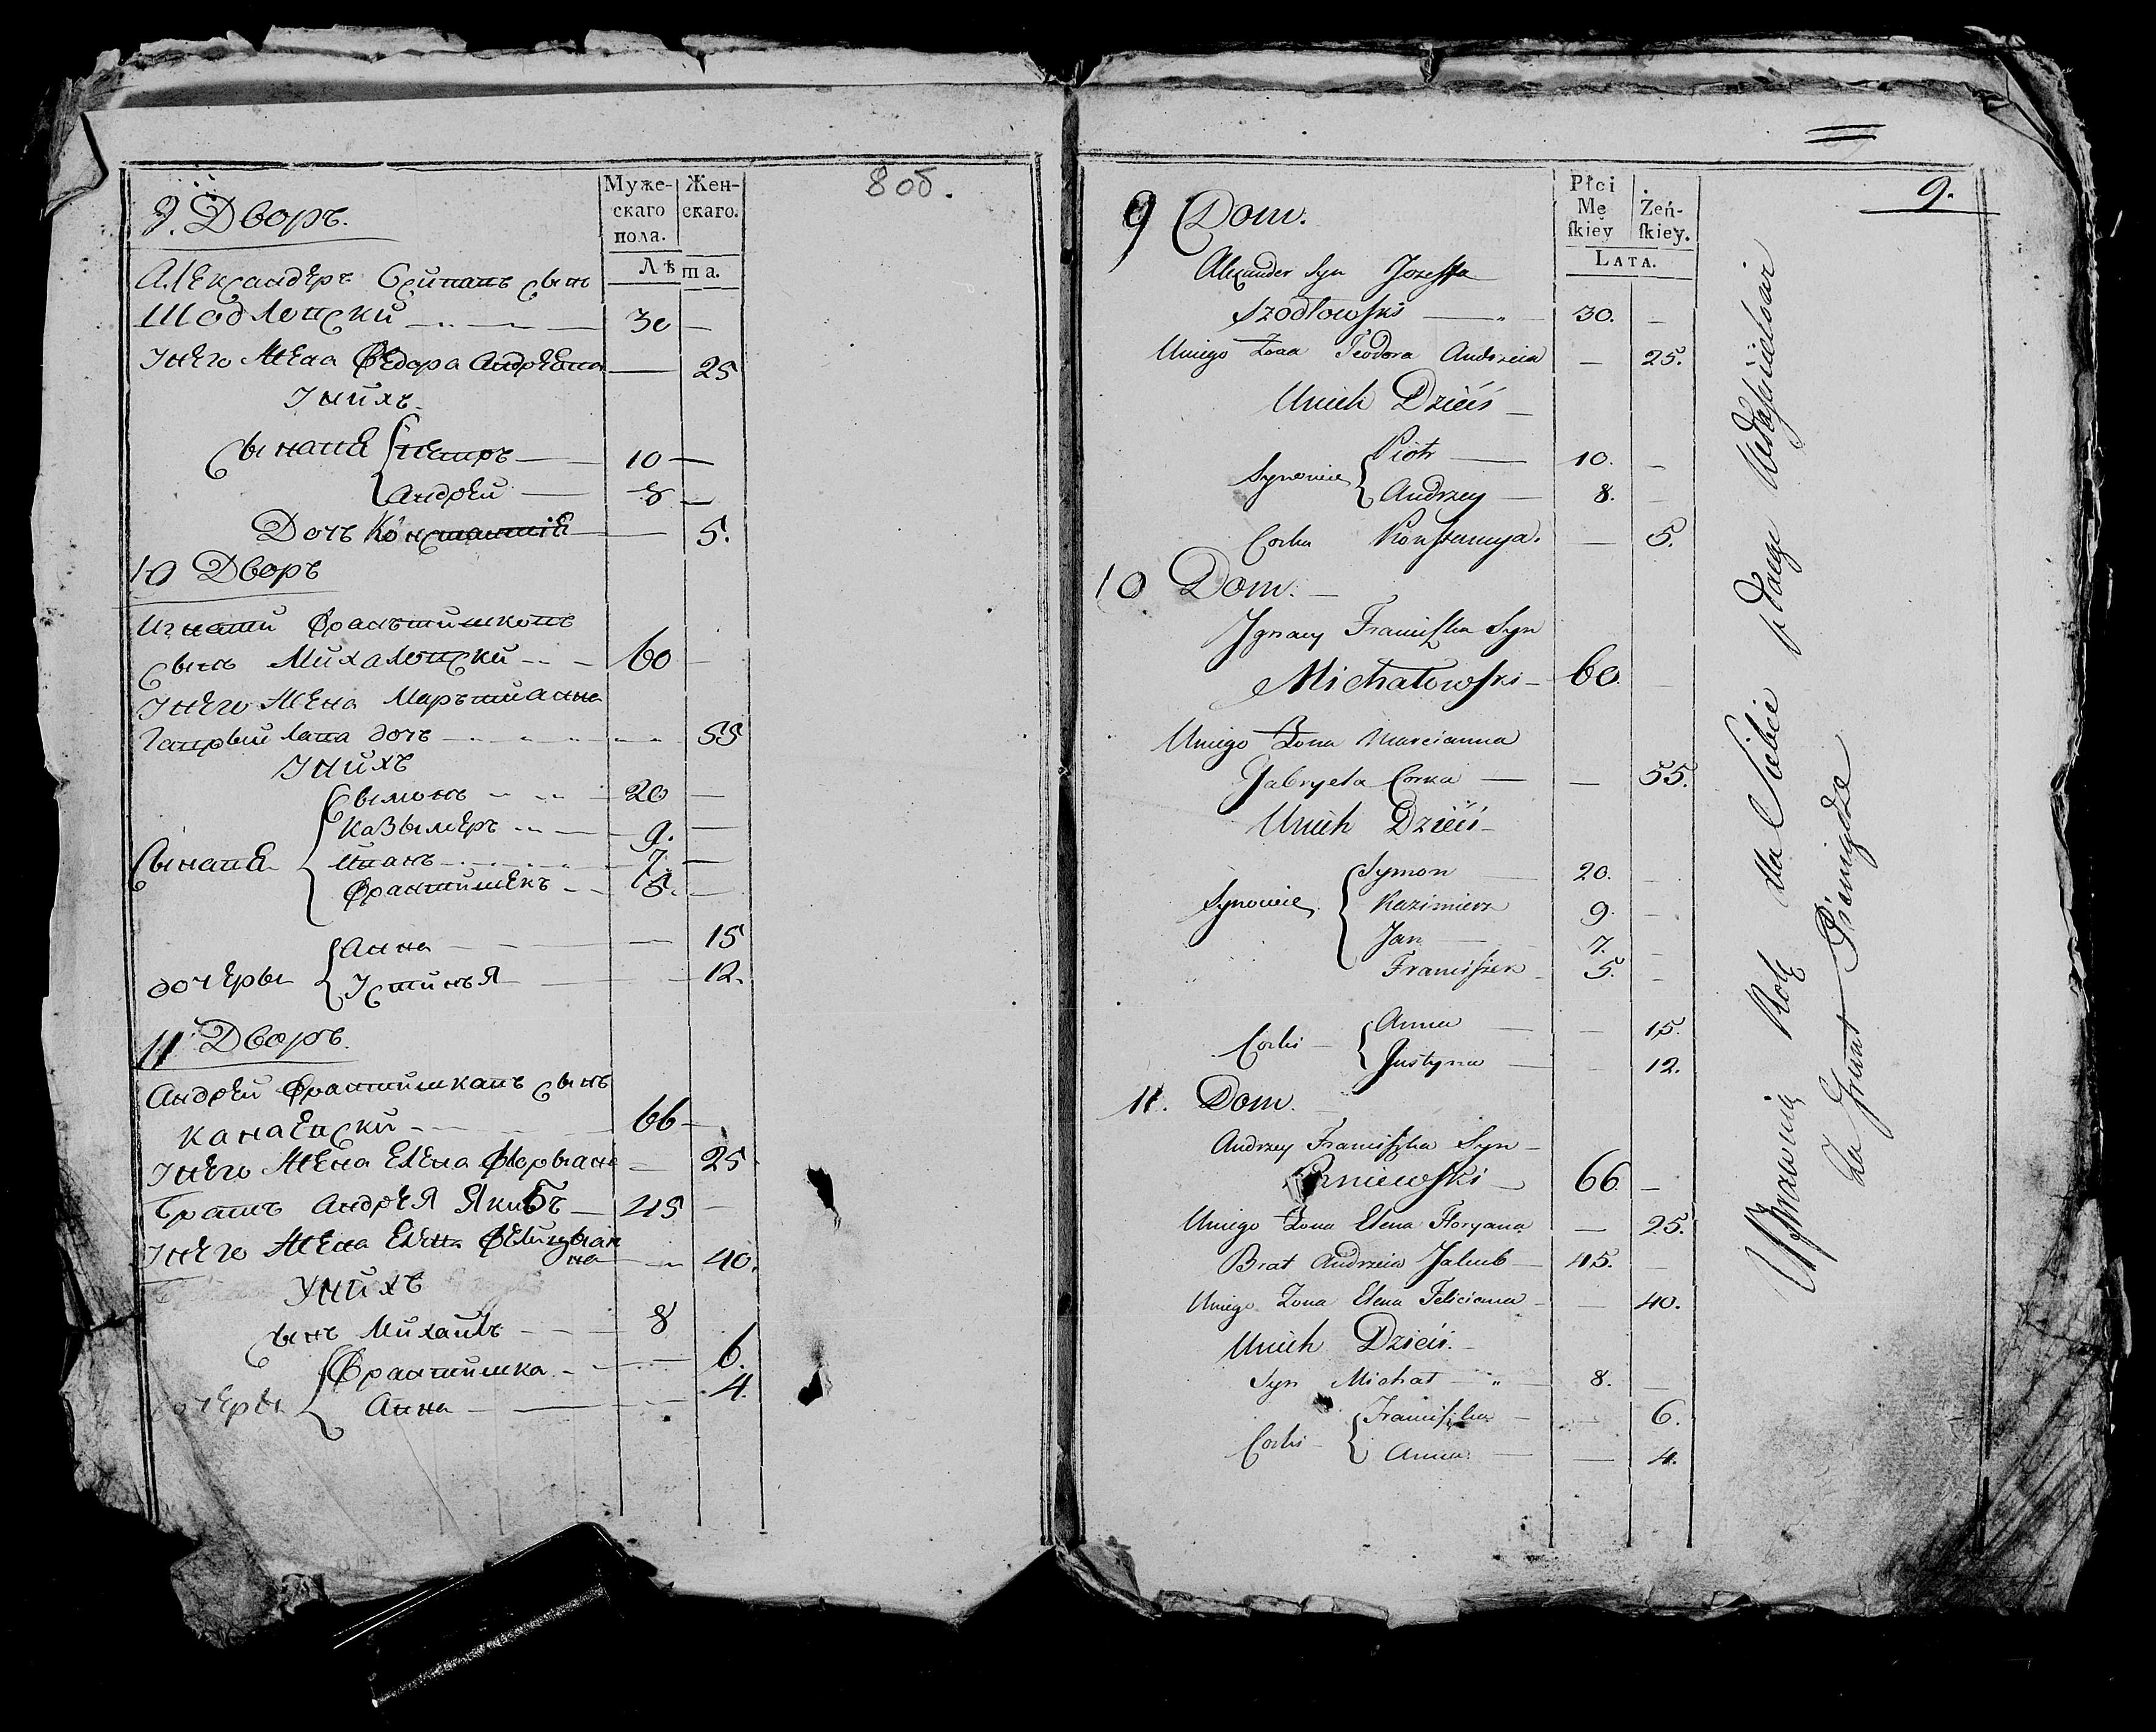 8 об.
Муже-
скаго
пола.
Жен-
скаго.
Лѣта.
9. Дворъ.
Александеръ Осиповъ сынъ
Шодловски 30 —
Унего Жена Федора Андреева — 25
Унихъ
Сынове Петръ 10 —
Андрей 8 —
Дочъ Констанція — 5.
10 Дворъ
Игнати Франтишковъ
сынъ Михаловски 60 —
Унего Жена Марътианна
Гаврыйлава дочъ — 55
Унихъ
Сынаве
Сымонъ 20 —
Казымеръ 9. —
Иванъ 7. —
Франтишекъ 5. —
дочеры
Анна — 15
Устинья — 12.
11 Дворъ.
Андрей Франтишкавъ сынъ
Канаевски 66 —
Унего Жена Елена Флорыана — 25
Братъ Андрея Якубъ 45 —
Унего Жена Елена Фелицыанна — 40.
Унихъ
Сынъ Михаилъ 8
дочеры
Франтишка — 6.
Анна — 4.
9.
Płci
Mę
ſkiey
Żeń-
ſkiey.
LATA.
9 Dom.
Alexander Syn Jozeffa
Szodłowski 30. —
Uniego Żona Teodora Andrzeia — 25.
Unich Dzieci
Synowie Piotr 10. —
Andrzey 8. —
Corka Konstancya. — 5.
10 Dom.
Ignacy Franciszka Syn
Michałowski 60 —
Uniego Żona Marcianna
Gabryela Corka — 55.
Unich Dzieci
Synowie
Symon 20. —
Kazimierz 9. —
Jan 7. —
Franciszek 5. —
Corki
Anna — 15.
Justyna — 12.
11. Dom.
Andrzey Franciszka Syn
66 —
Uniego Żona Elena Floryana — 25.
Brat Andrzeia Jakub 45. —
Uniego Żona Elena Feliciana — 40.
Unich Dzieci.
Syn Michał 8. —
Corki
Franciszka — 6.
Anna — 4.
Uprawnia Rolę dla Siebie płacąc
za Grunt Pieniądze